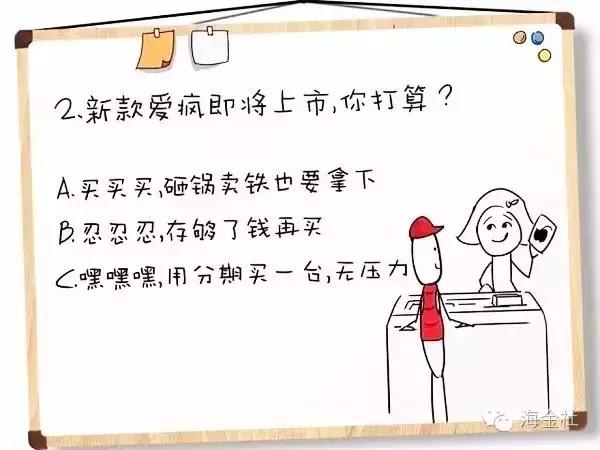 2.新款爱疯即将上市,你打算?
A.买买买,砸锅卖铁也要拿下
B.忍忍忍,存够了钱再买
C.嘿嘿嘿,用分期买一台,无压力
海金社